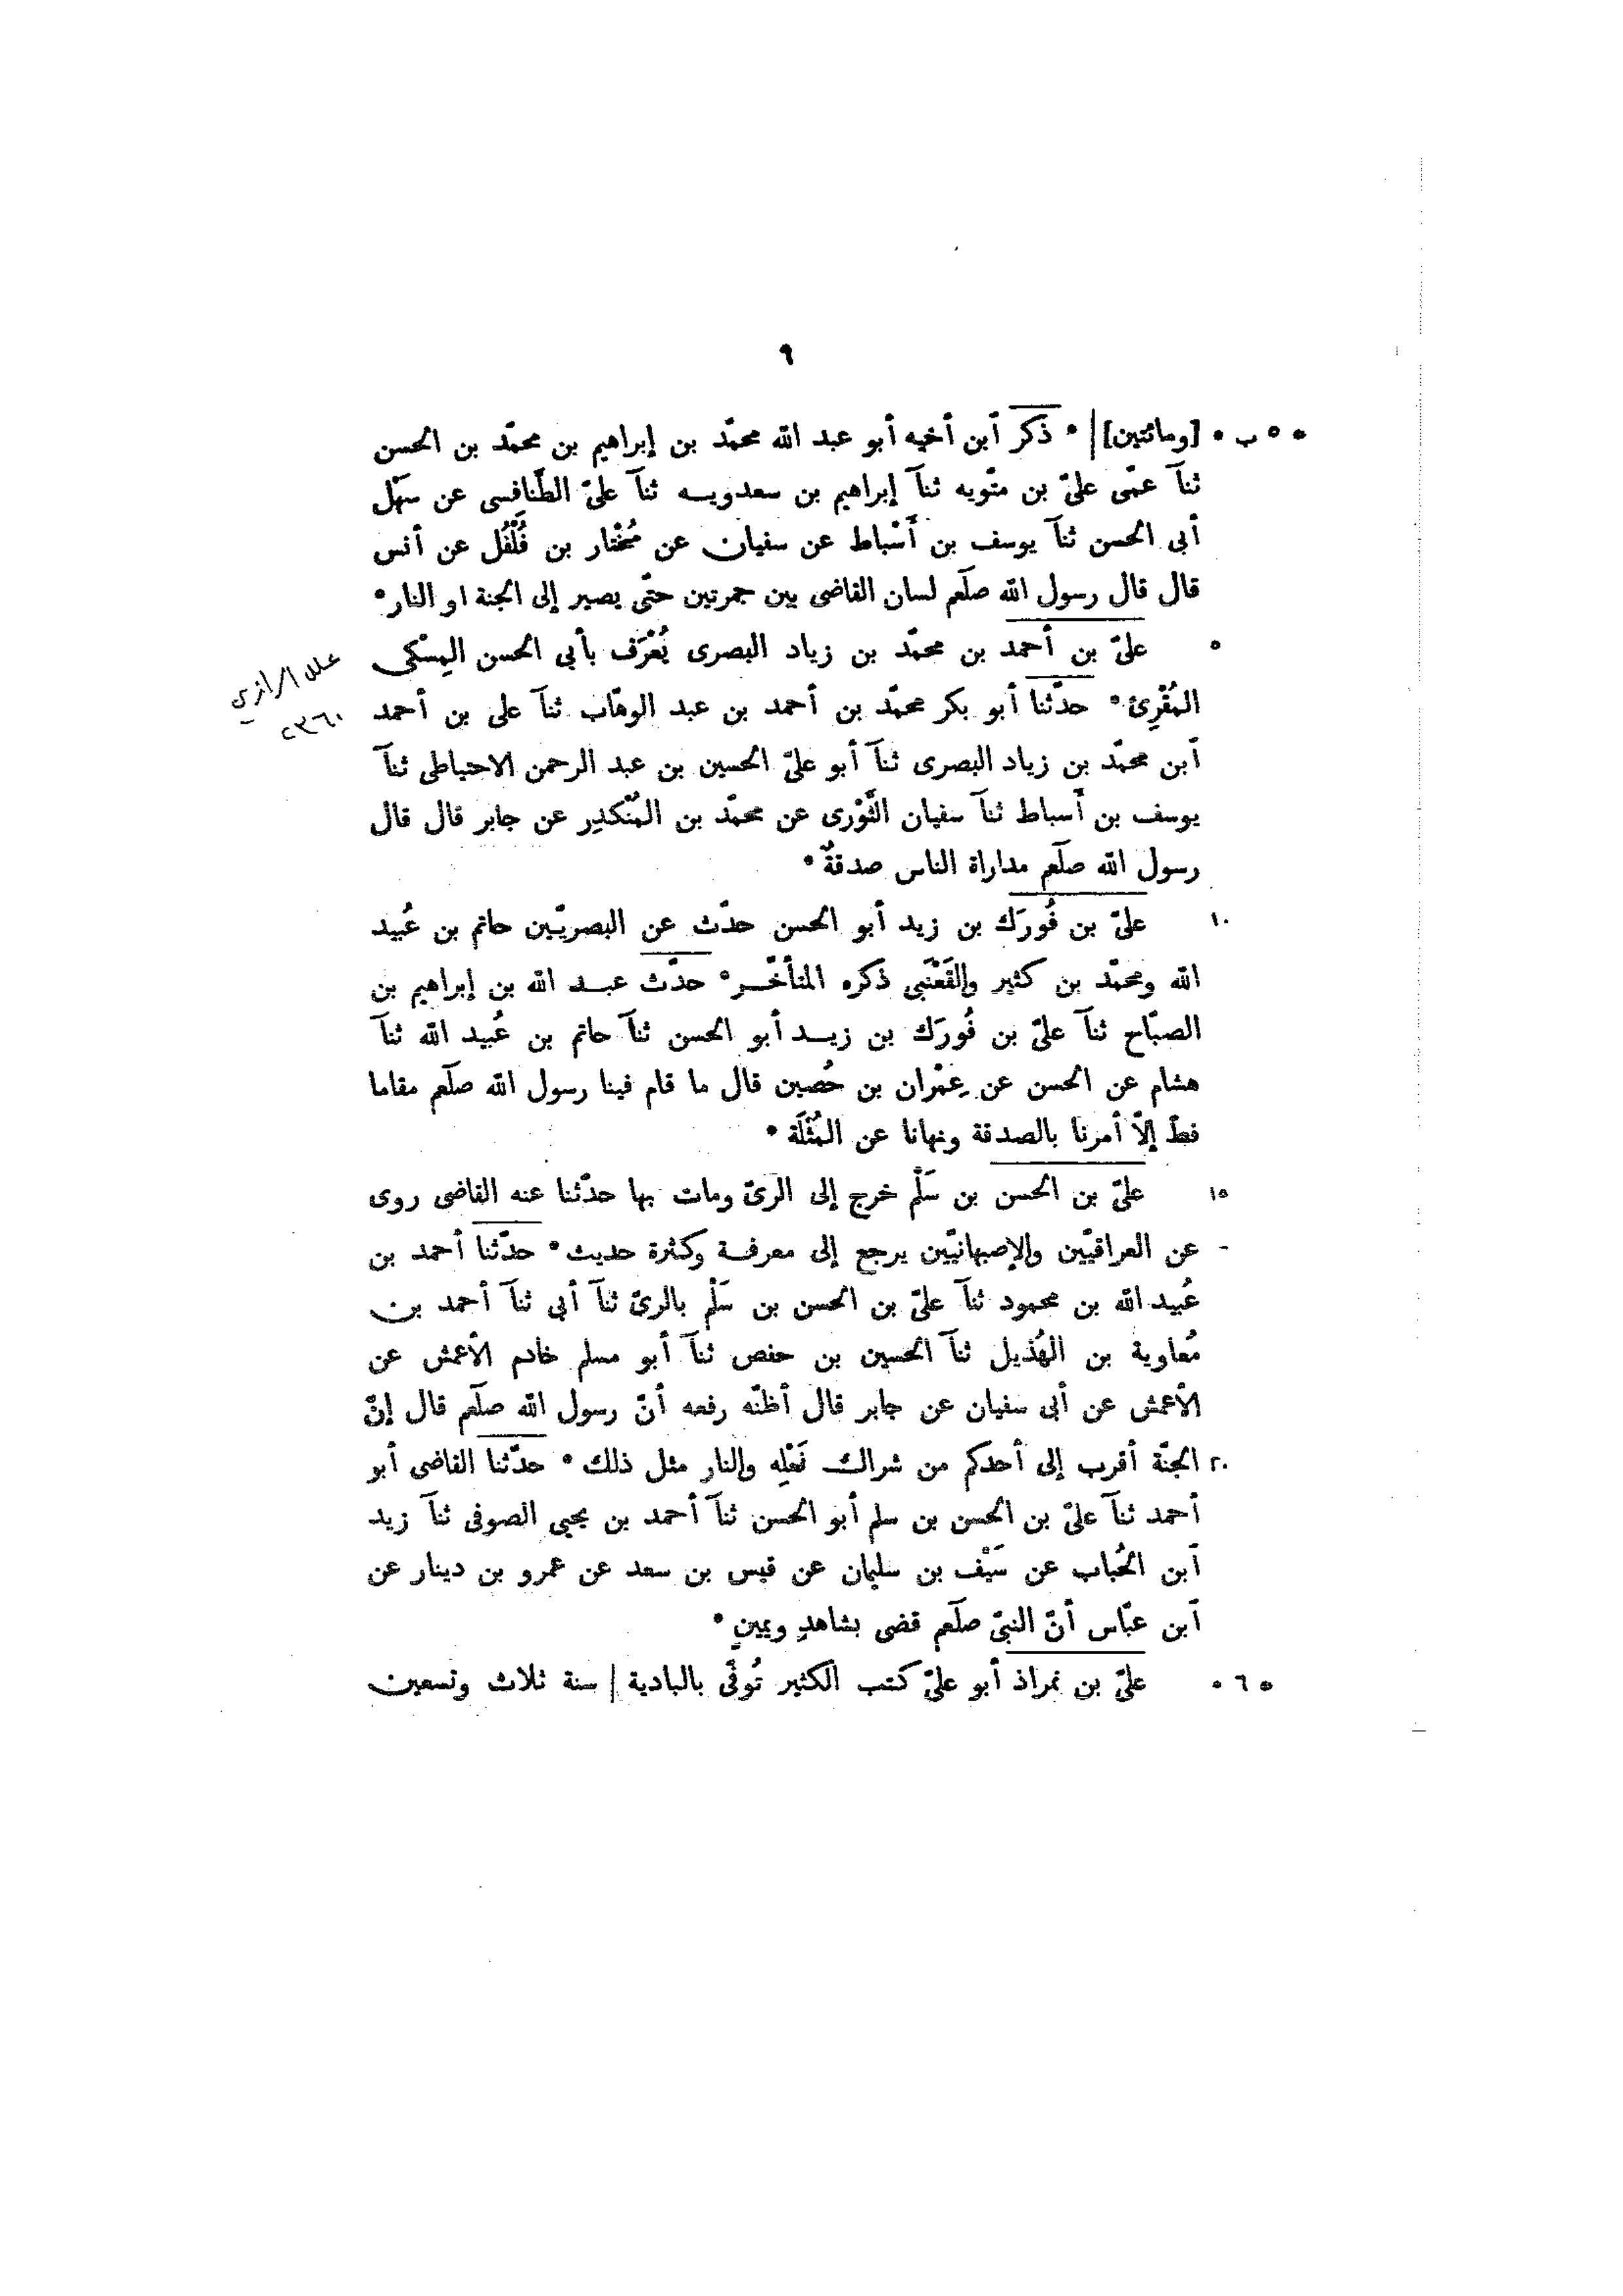 ٩
* ٥ ب * [ومائتين] | * ذكر آبن أخيه أبو عبد الله محمّد بن إبراهيم بن محمّد بن الحسن
ثنآ عمّى علىّ بن متّويه ثنآ إبراهيم بن سعدويه ثنآ علىّ الطَّنافِسى عن سَهْل
أبى الحسن ثنآ يوسف بن أَسْباط عن سفيان عن مُخْتار بن فُلْفُل عن أنس
قال قال رسول الله صلّعم لسان القاضى بين جمرتين حتّى يصير إلى الجنة او النار*
٥ علىّ بن أحمد بن محمّد بن زياد البصرى يُعْرَف بأبى الحسن المِسْكى
المُقْرِئ* حدّثنا أبو بكر محمّد بن أحمد بن عبد الوهّاب ثنآ على بن أحمد
آبن محمّد بن زياد البصرى ثنآ أبو علىّ الحسين بن عبد الرحمن الاحتياطى ثنآ
يوسف بن أسباط ثنآ سفيان الثَّوْرى عن محمّد بن المُنْكدِر عن جابر قال قال
رسول الله صلّعم مداراة الناس صدقةٌ*
١٠ علىّ بن فُورَك بن زيد أبو الحسن حدّث عن البصريّين حاتم بن عُبيد
الله ومحمّد بن كثير والقَعْنَبى ذكره المتأخّر* حدّث عبد الله بن إبراهيم بن
الصبّاح ثنآ علىّ بن فُورَك بن زيد أبو الحسن ثنآ حاتم بن عُبيد الله ثنآ
هشام عن الحسن عن عِمْران بن حُصين قال ما قام فينا رسول الله صلّعم مقاما
قطّ إلاّ أمرنا بالصدقة ونهانا عن المُثْلَة *
١٥ علىّ بن الحسن بن سَلْم خرج إلى الرىّ ومات بها حدّثنا عنه القاضى روى
- عن العراقيّين والإصبهانيّين يرجع إلى معرفة وكثرة حديث* حدّثنا أحمد بن
عُبيد الله بن محمود ثنآ علىّ بن الحسن بن سَلْم بالرىّ ثنآ أبى ثنآ أحمد بن
مُعاوية بن الهُذيل ثنآ الحسين بن حفص ثنآ أبو مسلم خادم الأعمش عن
الأعمش عن أبى سفيان عن جابر قال أظنّه رفعه أنّ رسول الله صلّعم قال إنّ
٢٠ الجنّة أقرب إلى أحدكم من شراك نَعْلِه والنار مثل ذلك * حدّثنا القاضى أبو
أحمد ثنآ علىّ بن الحسن بن سلم أبو الحسن ثنآ أحمد بن يحيى الصوفى ثنآ زيد
آبن الحُباب عن سَيْف بن سليمان عن قيس بن سعد عن عمرو بن دينار عن
آبن عبّاس أنّ النبىّ صلّعم قضى بشاهدٍ ويمينٍ *
* ٦ * علىّ بن نمراذ أبو علىّ كتب الكثير تُوفّى بالبادية | سنة ثلاث وتسعين
علل الرازي
٢٣٦٠